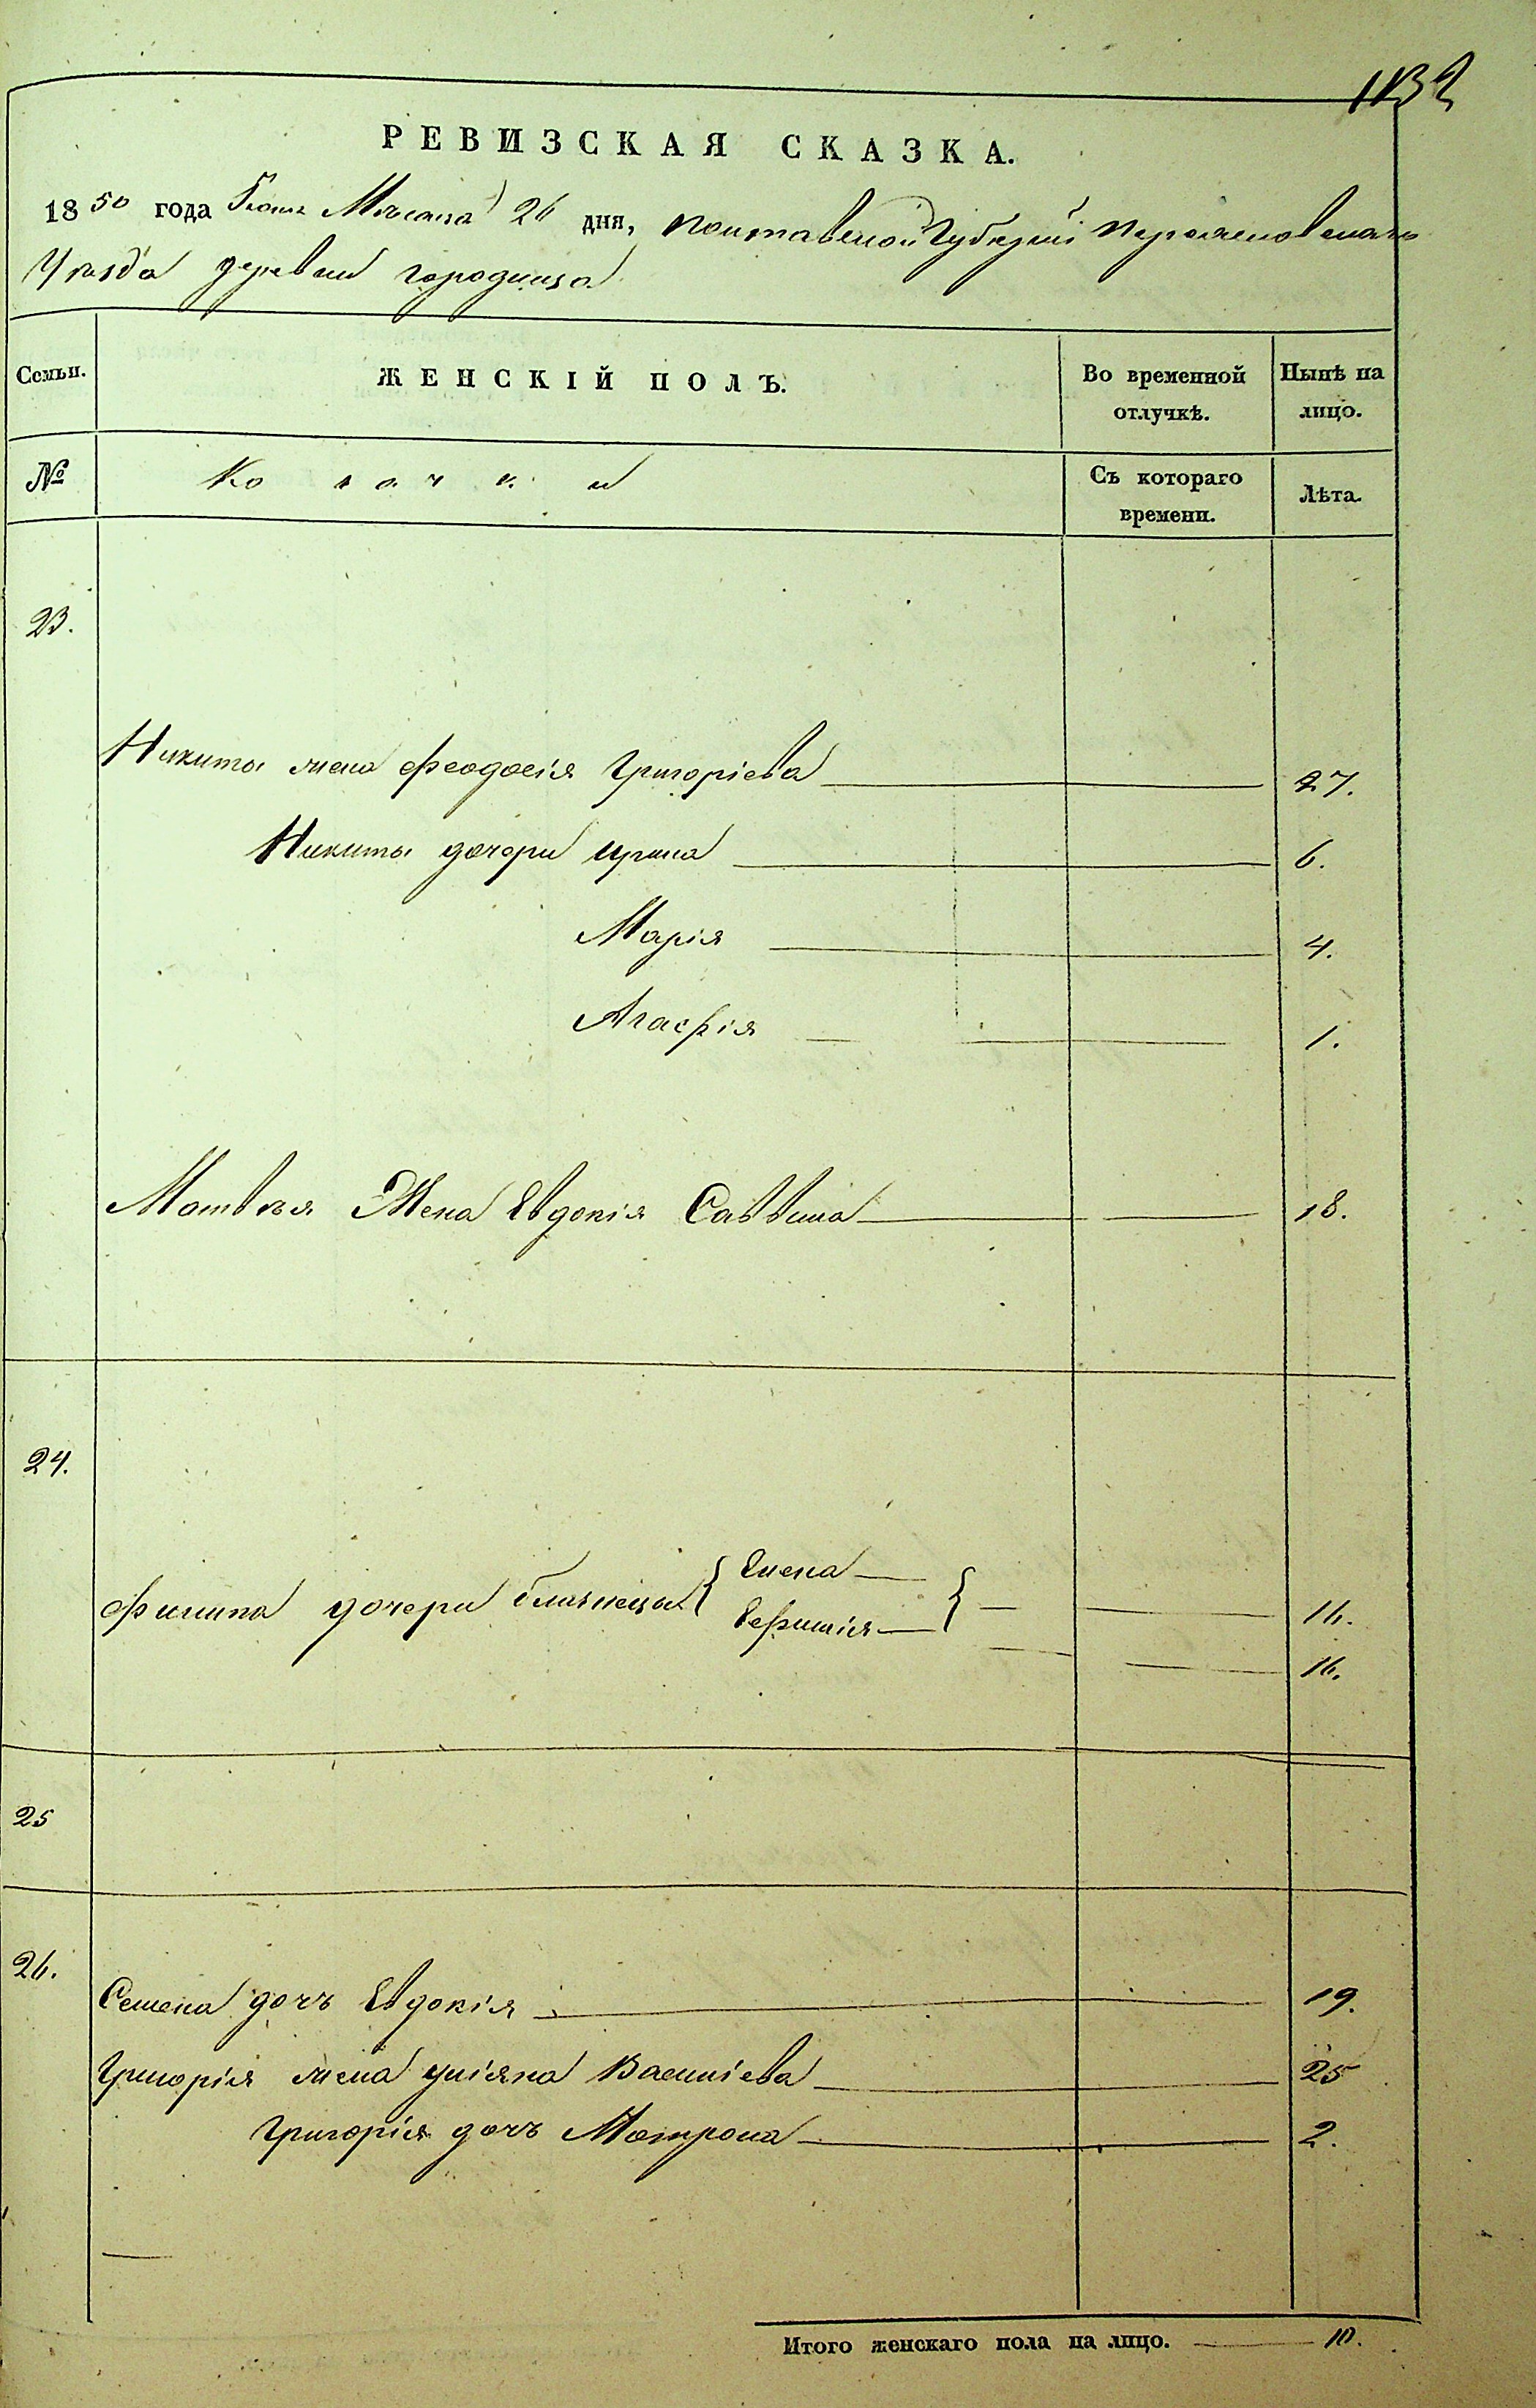 1132
РЕВИЗСКАЯ СКАЗКА.
1850 года Июня Месяца 26 дня, Полтавской Губернии Переяславскаго
Уезда деревни городища
Семьи. ЖЕНСКІЙ ПОЛЪ. Во временной отлучкѣ. Нынѣ на лицо.
№ Козачки Съ котораго времени. Лѣта.
23.
Никиты жена Феодосія Григоріева 27.
Никиты дочери Ирина 6.
Марія 4.
Агафія 1.
Матвѣя Жена Евдокія Саввина 18.
24.
Филипа дочери близнецы { Елена
Евфимія } 16.
16.
25
26.
Семена дочь Евдокія 19.
Григорія жена Уліяна Василіева 25
Григорія дочь Матрона 2.
Итого женскаго пола на лицо. 10.